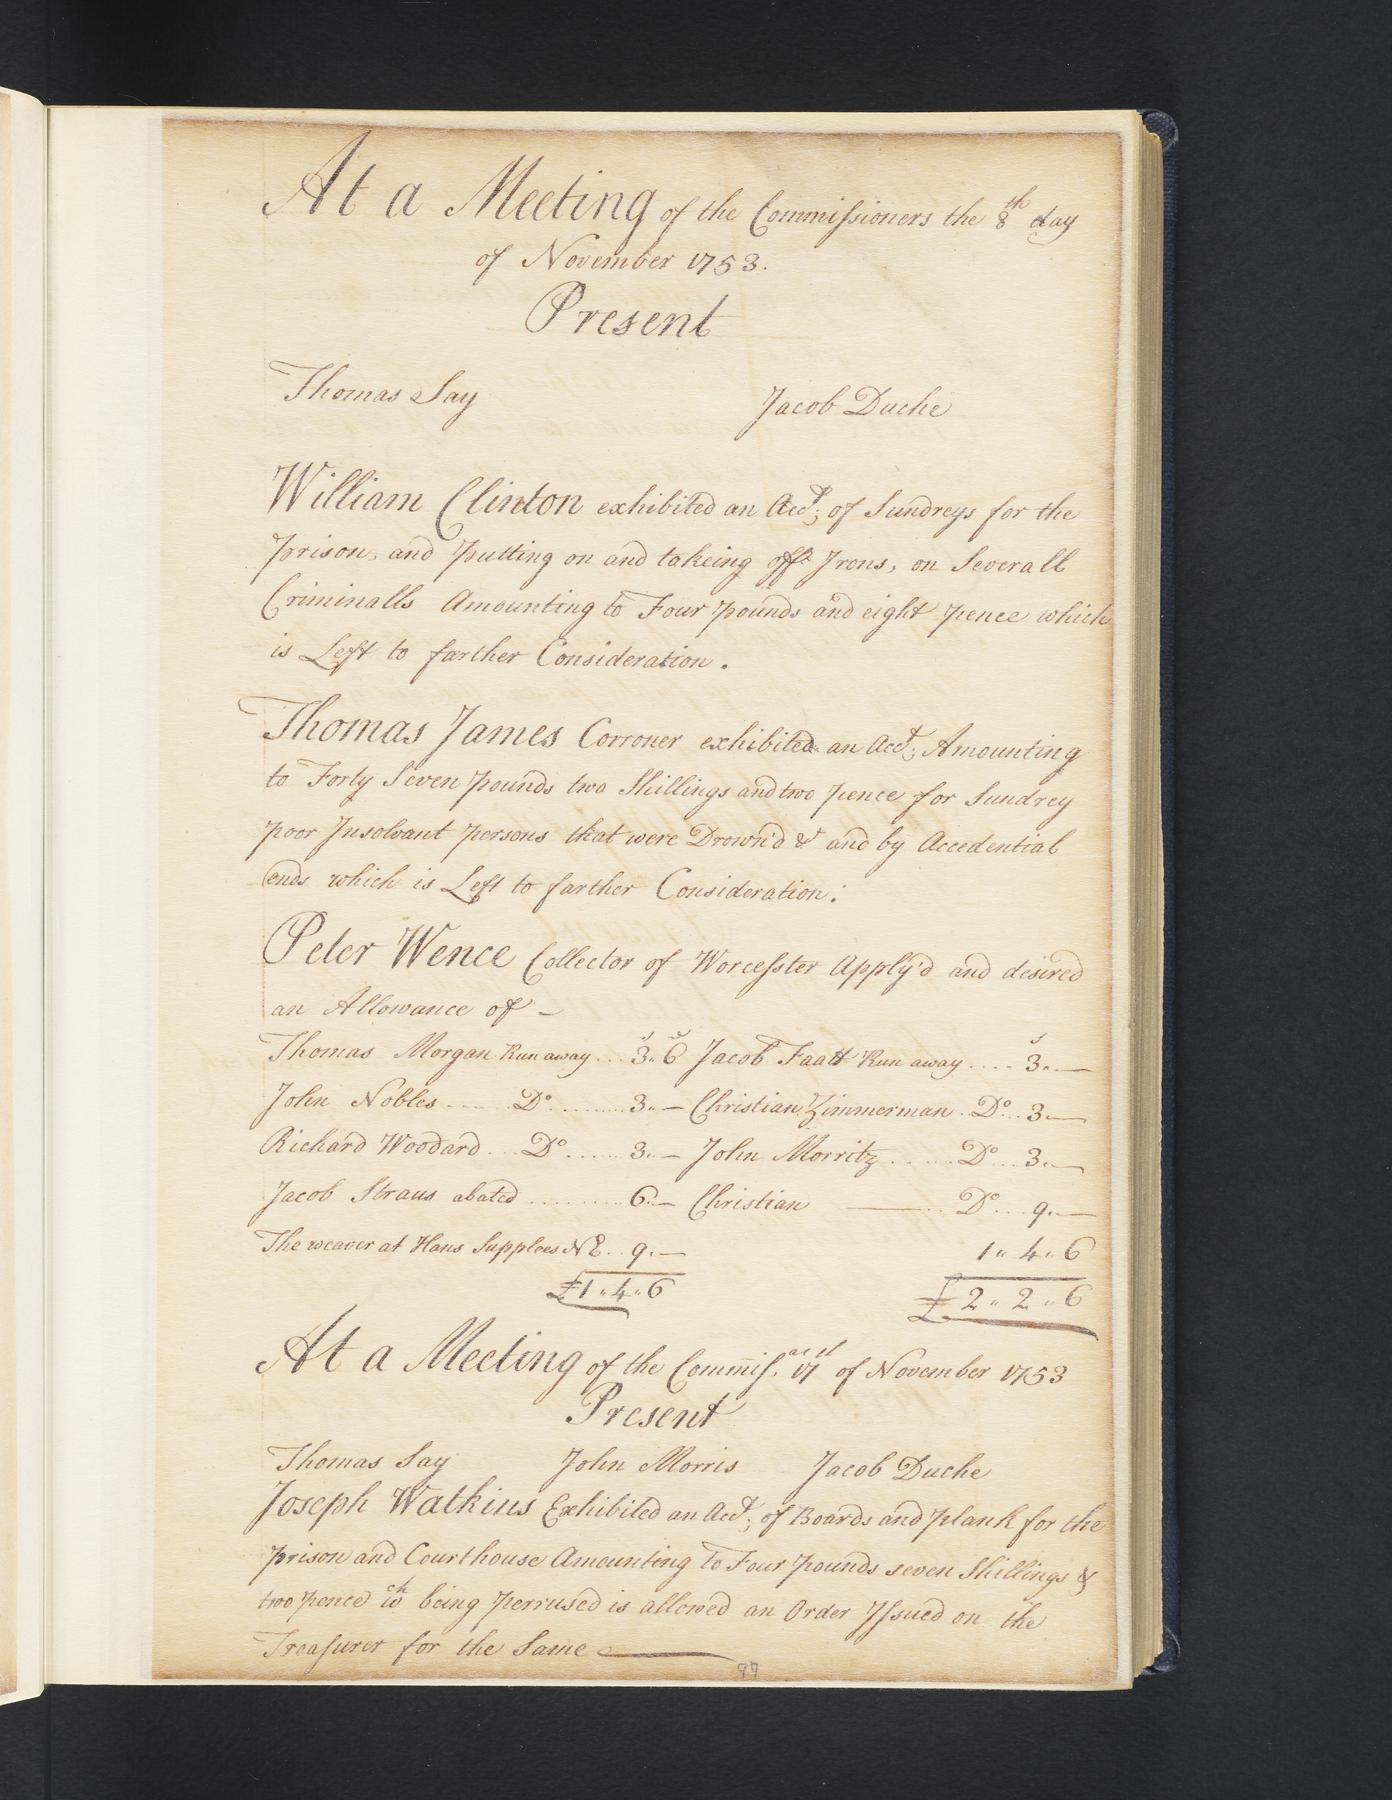 At a Meeting of the Commissioners the 8th day
of November 1753.
Present
Thomas Say Jacob Duche
William Clinton exhibited an Acct; of Sundreys for the
prison, and putting on and takeing off Irons, on Severall
Criminalls Amounting to Four pounds and eight pence which
is Left to farther Consideration.
Thomas James Corroner exhibited an Acct; Amounting
to Forty Seven pounds two Shillings and two pence for Sundrey
poor Insolvant persons that were Drown'd & and by Accedential
ends which is Left to farther Consideration:
Peter Wence Collector of Worcesster Apply'd and desired
an Allowance of -
Thomas Morgan Run away ... 3..6 Jacob Faatt Run away .... 3..—
John Nobles ..... Do ....... 3..— Christian Zimmerman .. Do .. 3..—
Richard Woodard ... Do ...... 3..— John Morritz ...... Do ... 3..—
Jacob Straus abated ......... 6..— Christian ——— Do .... 9..—
The weaver at Hans Supplees .. 9..— 1.. 4.. 6
£1..4..6 £2..2..6
At a Meeting of the Commiss. 17 of November 1753
Present
Thomas Say John Morris Jacob Duche
Joseph Watkins Exhibited an Acct; of Boards and plank for the
prison and Courthouse Amounting to Four pounds seven Shillings &
two pence wch being perrused is allowed an Order Issued on the
Treasurer for the Same ———
97